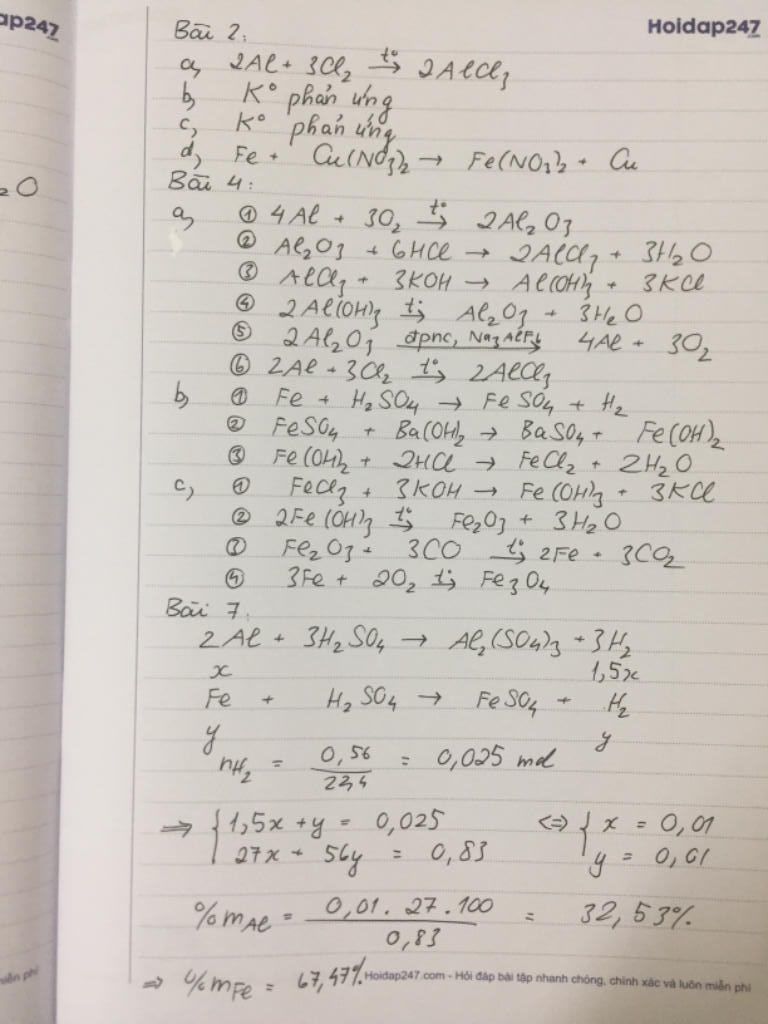 ap247
Hoidap247
₂O
Bài 2:
a, 2Al + 3Cl₂ →(t°) 2AlCl₃
b, K° phản ứng
c, K° phản ứng
d, Fe + Cu(NO₃)₂ → Fe(NO₃)₂ + Cu
Bài 4:
a, ① 4Al + 3O₂ →(t°) 2Al₂O₃
② Al₂O₃ + 6HCl → 2AlCl₃ + 3H₂O
③ AlCl₃ + 3KOH → Al(OH)₃ + 3KCl
④ 2Al(OH)₃ →(t°) Al₂O₃ + 3H₂O
⑤ 2Al₂O₃ →(đpnc, Na₃AlF₆) 4Al + 3O₂
⑥ 2Al + 3Cl₂ →(t°) 2AlCl₃
b, ① Fe + H₂SO₄ → FeSO₄ + H₂
② FeSO₄ + Ba(OH)₂ → BaSO₄ + Fe(OH)₂
③ Fe(OH)₂ + 2HCl → FeCl₂ + 2H₂O
c, ① FeCl₃ + 3KOH → Fe(OH)₃ + 3KCl
② 2Fe(OH)₃ →(t°) Fe₂O₃ + 3H₂O
③ Fe₂O₃ + 3CO →(t°) 2Fe + 3CO₂
④ 3Fe + 2O₂ →(t°) Fe₃O₄
Bài 7:
2Al + 3H₂SO₄ → Al₂(SO₄)₃ + 3H₂
x 1,5x
Fe + H₂SO₄ → FeSO₄ + H₂
y y
nH₂ = 0,56/22,4 = 0,025 mol
⇒ { 1,5x + y = 0,025 ⇔ { x = 0,01
27x + 56y = 0,83 y = 0,01
%mAl = 0,01 . 27 . 100 / 0,83 = 32,53%
⇒ %mFe = 67,47%
Hoidap247.com - Hỏi đáp bài tập nhanh chóng, chính xác và luôn miễn phí
miễn phí